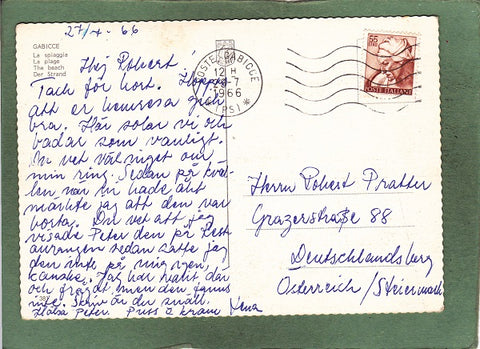 27/7 - 66
GABICCE
La spiaggia
La plage
The beach
Der Strand
Hej Robert!
Tack för kort. Hoppas
att er hemresa gick
bra. Här solar vi och
badar som vanligt.
Du vet väl nog om
min ring. Sedan på kväl-
len när vi hade ätit
märkte jag att den var
borta. Du vet att jag
visade Peter den på rest
aurangen sedan satte jag
den inte på mig igen,
kanske. Jag har varit där
och frågat men den fanns
inte. Skriv är du snäll.
Hälsa Peter. Puss & kram
POSTE GABICCE
12 H
-7
1966
(PS)
65
POSTE ITALIANE
Herrn Robert Pratter
Grazerstraße 88
Deutschlandsberg
Österreich / Steiermark